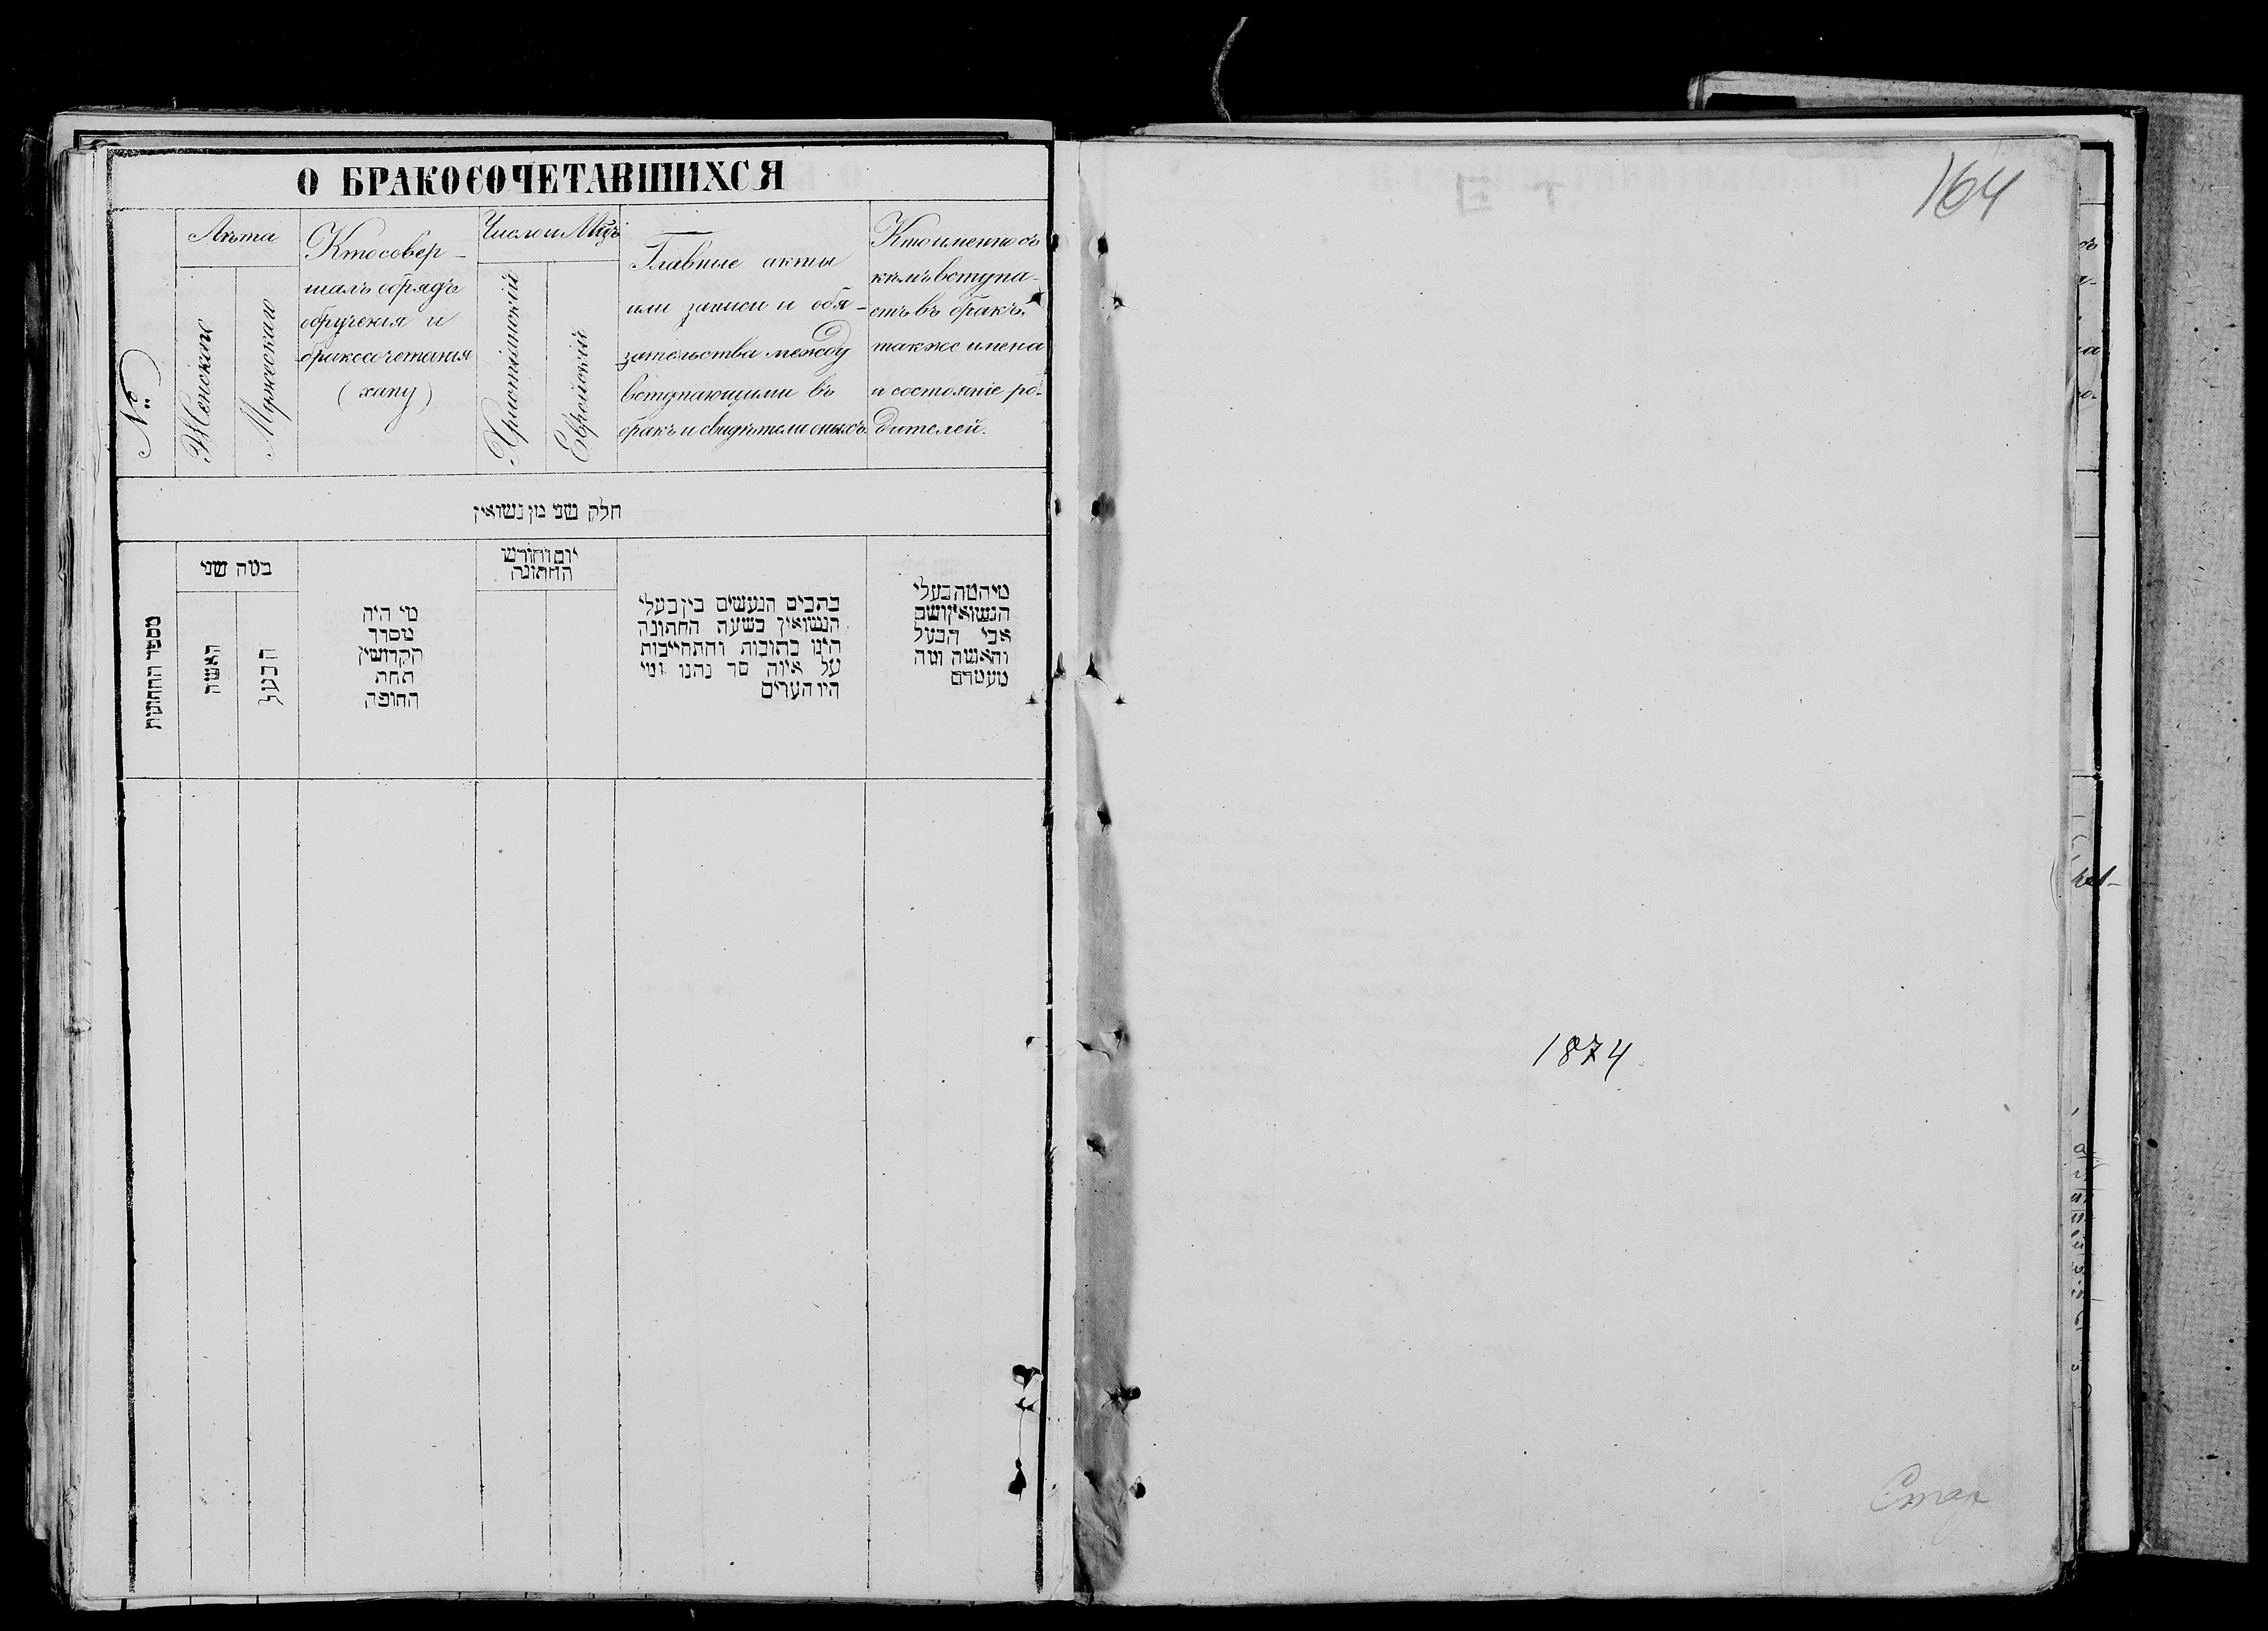 О БРАКОСОЧЕТАВШИХСЯ
№
Лѣта
Женскаго
Мужескаго
Кто совер-
шалъ обрядъ
обрученія и
бракосочетанія
(хапу)
Число и Мцъ
Христіянскій
Еврейскій
Главные акты
или записи и обя-
зательства между
вступающими въ
бракъ и свидѣтели оныхъ.
Кто именно съ
кѣмъ вступа-
етъ въ бракъ,
также имена
и состояніе ро-
дителей.
חלק שני מן נשואין
מספר החתונות
במה שני
האשה
הבעל
מי היה
מסדר
הקדושין
תחת
החופה
יום וחודש
החתונה
כתבים הנעשים בין בעלי
הנשואין בשעת החתונה
היינו כתובות והתחייבות
על איזה סך נתנו ומי
היו העדים
מי המה בעלי
הנשואין ושם
אבי הבעל
והאשה ומה
מעמדם
164
1874